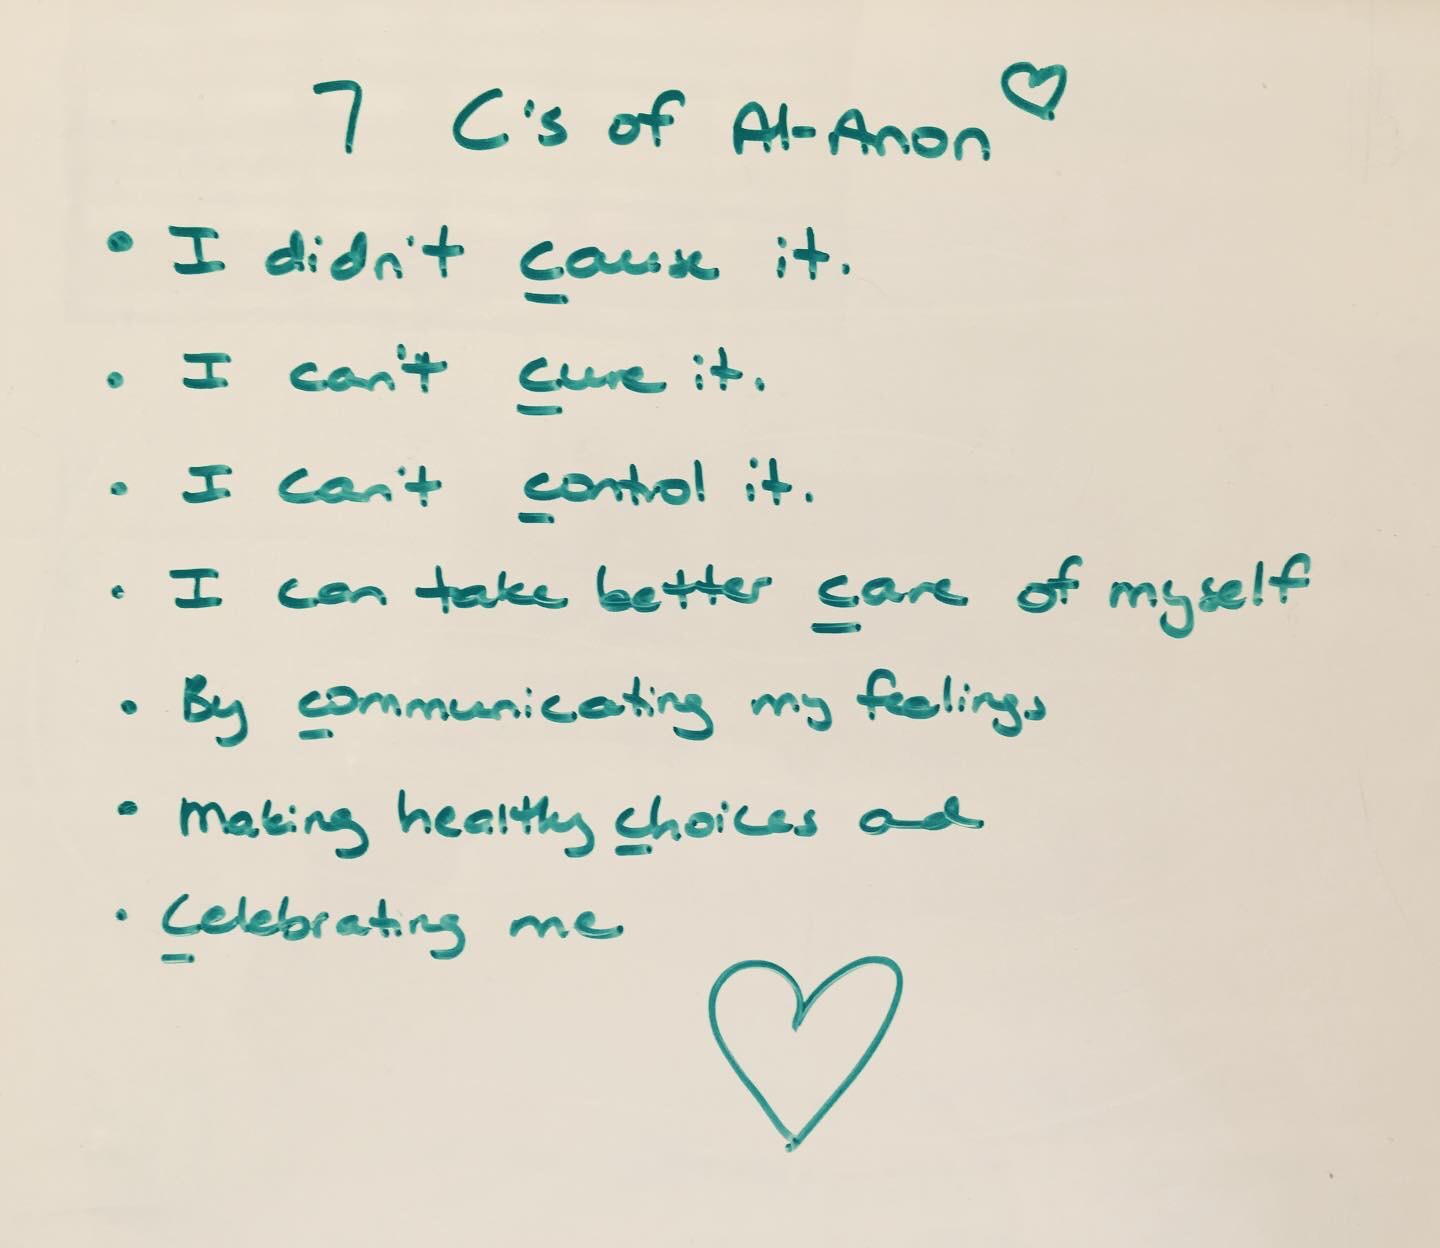 7 C's of Al-Anon
• I didn't cause it.
• I can't cure it.
• I can't control it.
• I can take better care of myself
• By communicating my feelings
• Making healthy choices ad
• Celebrating me